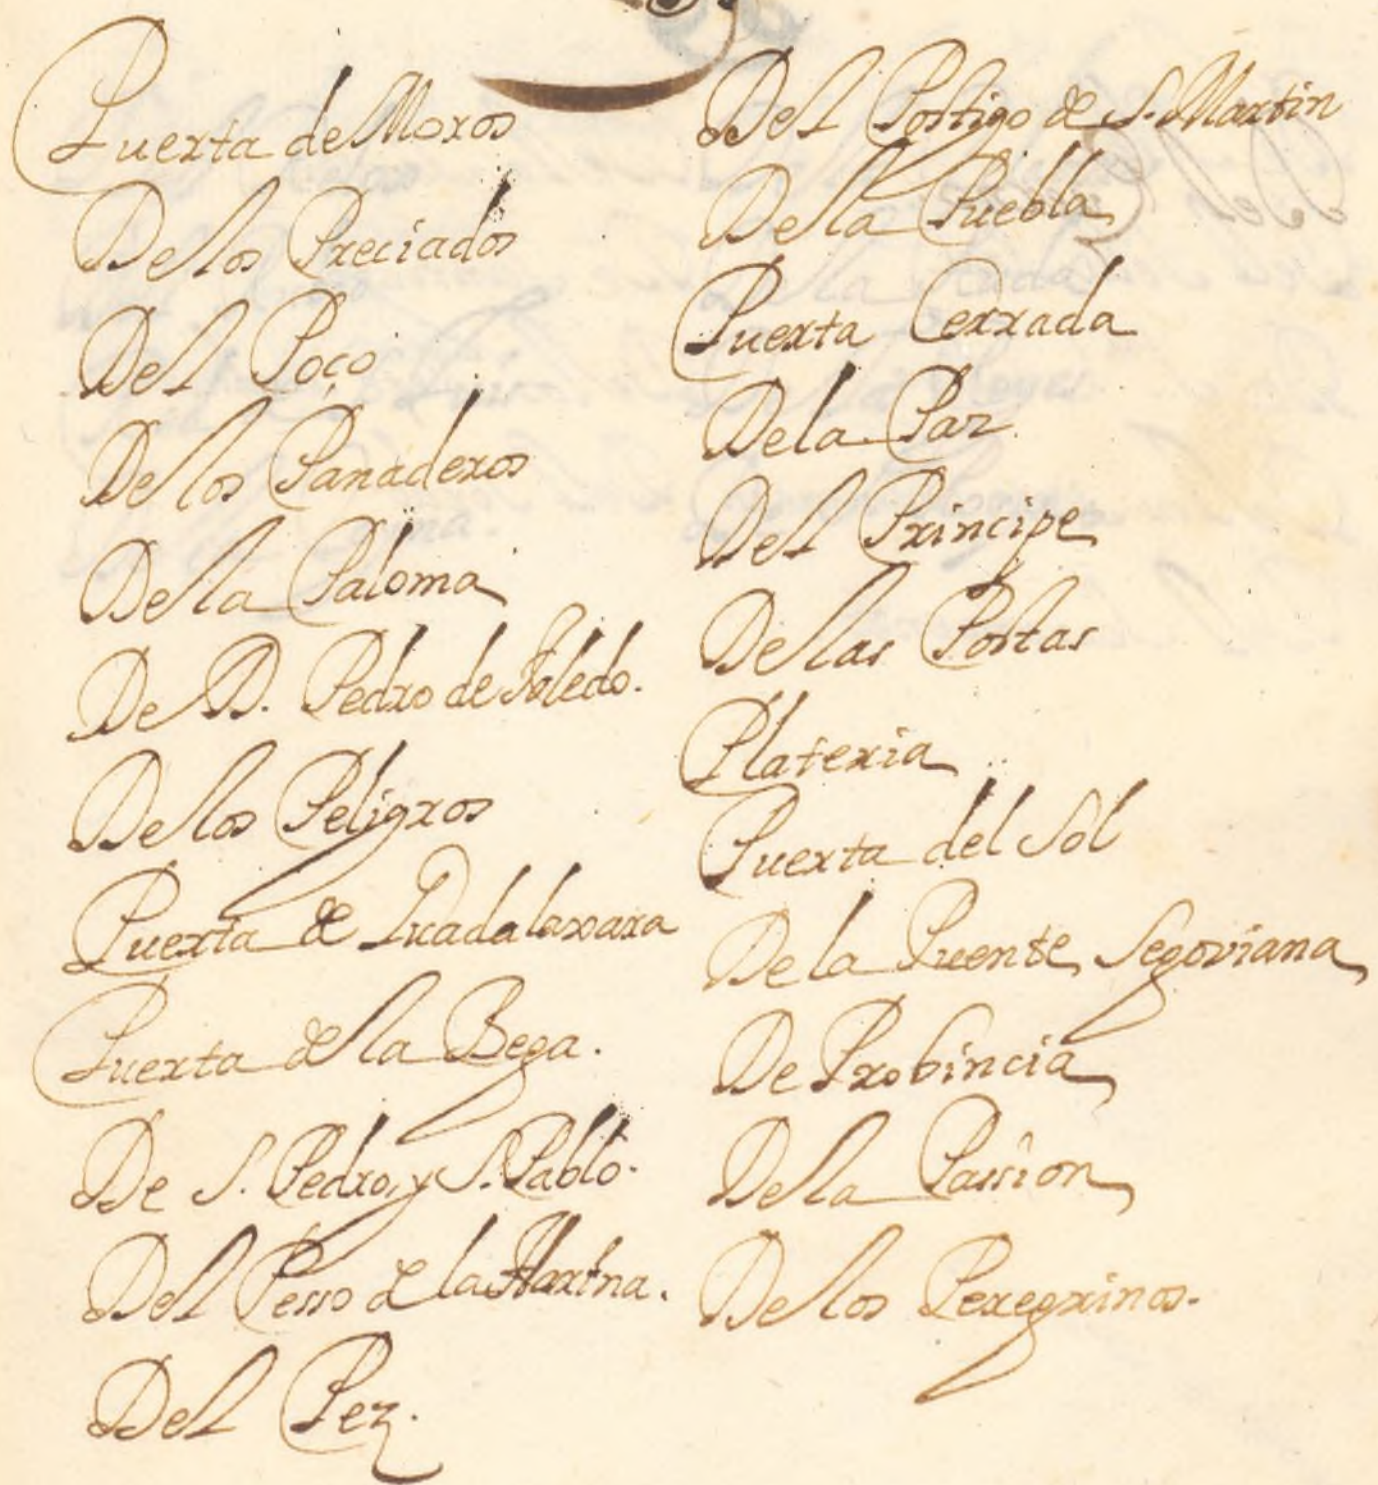 Puerta de Moros
De los Preciados
Del Poço
De los Panaderos
De la Paloma
De D. Pedro de Toledo.
De los Peligros
Puerta de Guadalaxara
Puerta de la Bega.
De S. Pedro, y S. Pablo.
Del Pesso de la Harina.
Del Pez.
Del Postigo de S. Martin
De la Puebla
Puerta Cerrada
De la Paz
Del Principe
De las Postas
Plateria
Puerta del Sol
De la Puente Segoviana
De Probincia
De la Passion
De los Peregrinos.